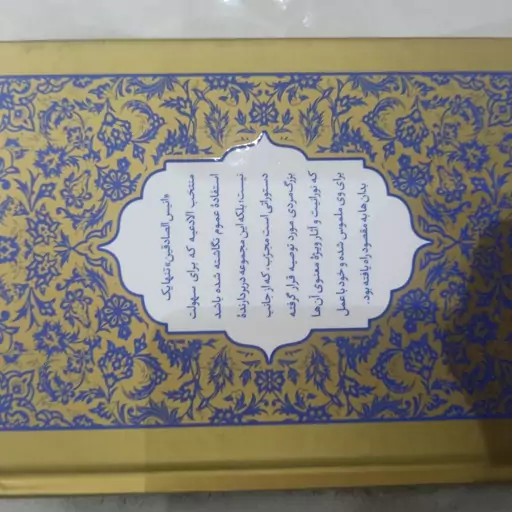 «انیس الصادقین» تنها یک
منتخب الادعیه که برای سهولت
استفادهٔ عموم نگاشته شده باشد
نیست؛ بلکه این مجموعه دربردارندهٔ
دستوراتی است مجرّب، که از جانب
بزرگ‌مردی مورد توصیه قرار گرفته
که نورانیت و آثار ویژهٔ معنوی آن‌ها
برای وی ملموس شده و خود با عمل
بدان‌ها به مقصود راه یافته بود.